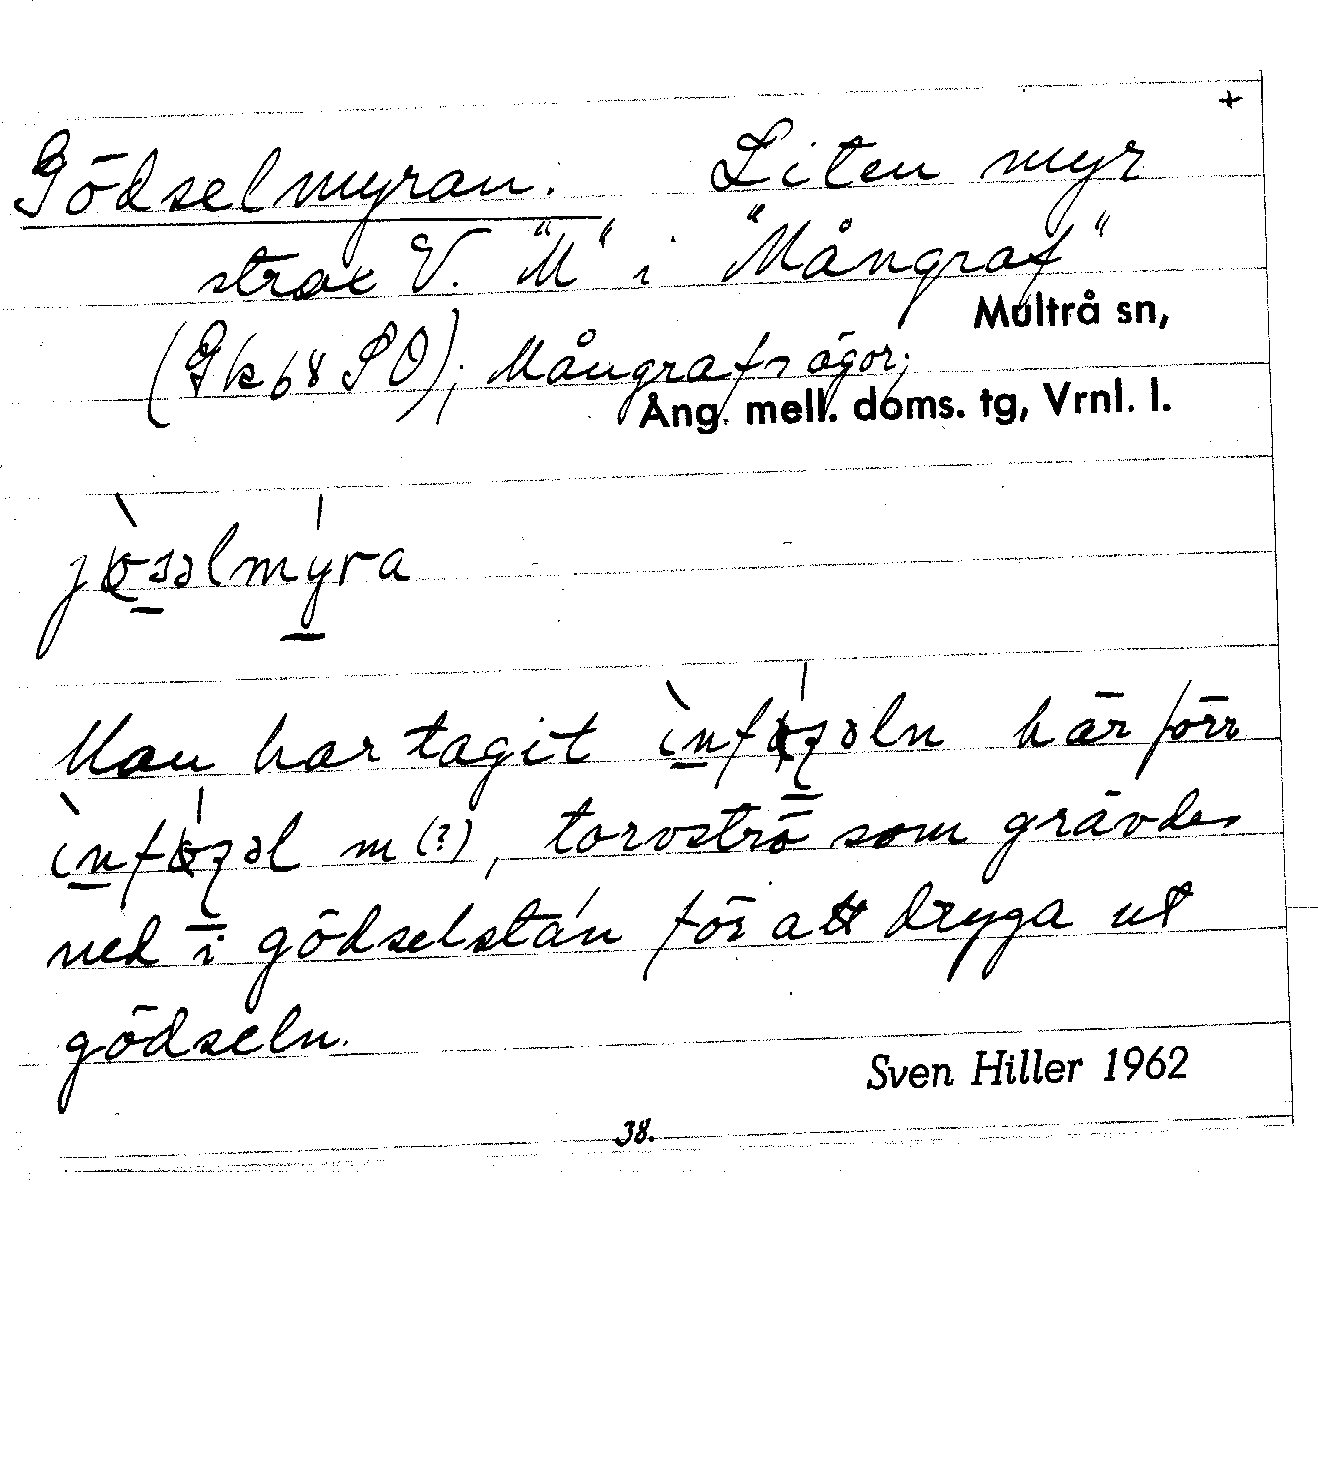 +
Gödselmyran. Liten myr
strax V. "M" i "Mångraf"
Multrå sn,
(Gk 68 SO); Mångrafs ägor;
Ång. mell. doms. tg, Vrnl. l.
Man har tagit här förr
m (?), torvströ som grävdes
ned i gödselstán för att dryga ut
gödseln.
Sven Hiller 1962
38.